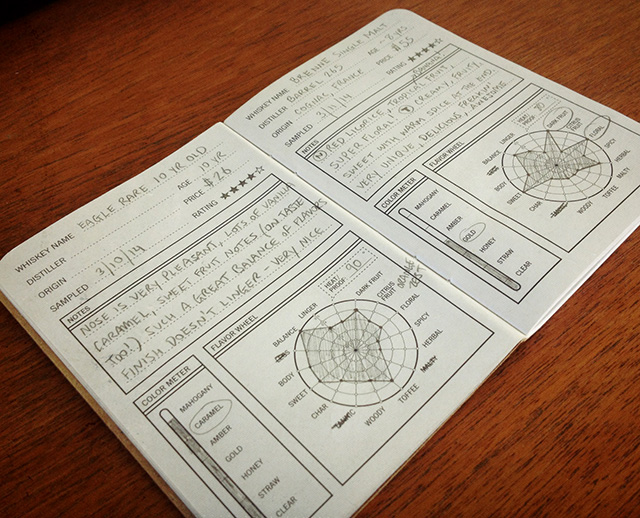 WHISKEY NAME EAGLE RARE 10 YR OLD
DISTILLER AGE 10 YR
ORIGIN PRICE $26
SAMPLED 3/10/14 RATING ★★★★☆
NOTES
NOSE IS VERY PLEASANT, LOTS OF VANILLA
CARAMEL, SWEET FRUIT NOTES (ON TASTE
TOO!) SUCH A GREAT BALANCE OF FLAVORS
FINISH DOESN'T LINGER VERY NICE
COLOR METER
MAHOGANY
CARAMEL
AMBER
GOLD
HONEY
STRAW
CLEAR
FLAVOR WHEEL
HEAT
PROOF 90
DARK FRUIT
CITRUS FRUIT
FLORAL
SPICY
HERBAL
MALTY
TOFFEE
WOODY
CHAR
SWEET
BODY
BALANCE
LINGER
WHISKEY NAME BRENNE SINGLE MALT
DISTILLER BARREL 265 AGE
ORIGIN COGNAC, FRANCE PRICE $55
SAMPLED 3/11/14 RATING ★★★★☆
NOTES
(N) RED LICORICE, TROPICAL FRUIT,
SUPER FLORAL (T) CREAMY, FRUITY,
SWEET WITH WARM SPICE AT THE END.
VERY UNIQUE, DELICIOUS, FREAKIN'
AWESOME
COLOR METER
MAHOGANY
CARAMEL
AMBER
GOLD
HONEY
STRAW
CLEAR
FLAVOR WHEEL
HEAT
PROOF 80
DARK FRUIT
CITRUS FRUIT
FLORAL
SPICY
HERBAL
MALTY
TOFFEE
WOODY
CHAR
SWEET
BODY
BALANCE
LINGER